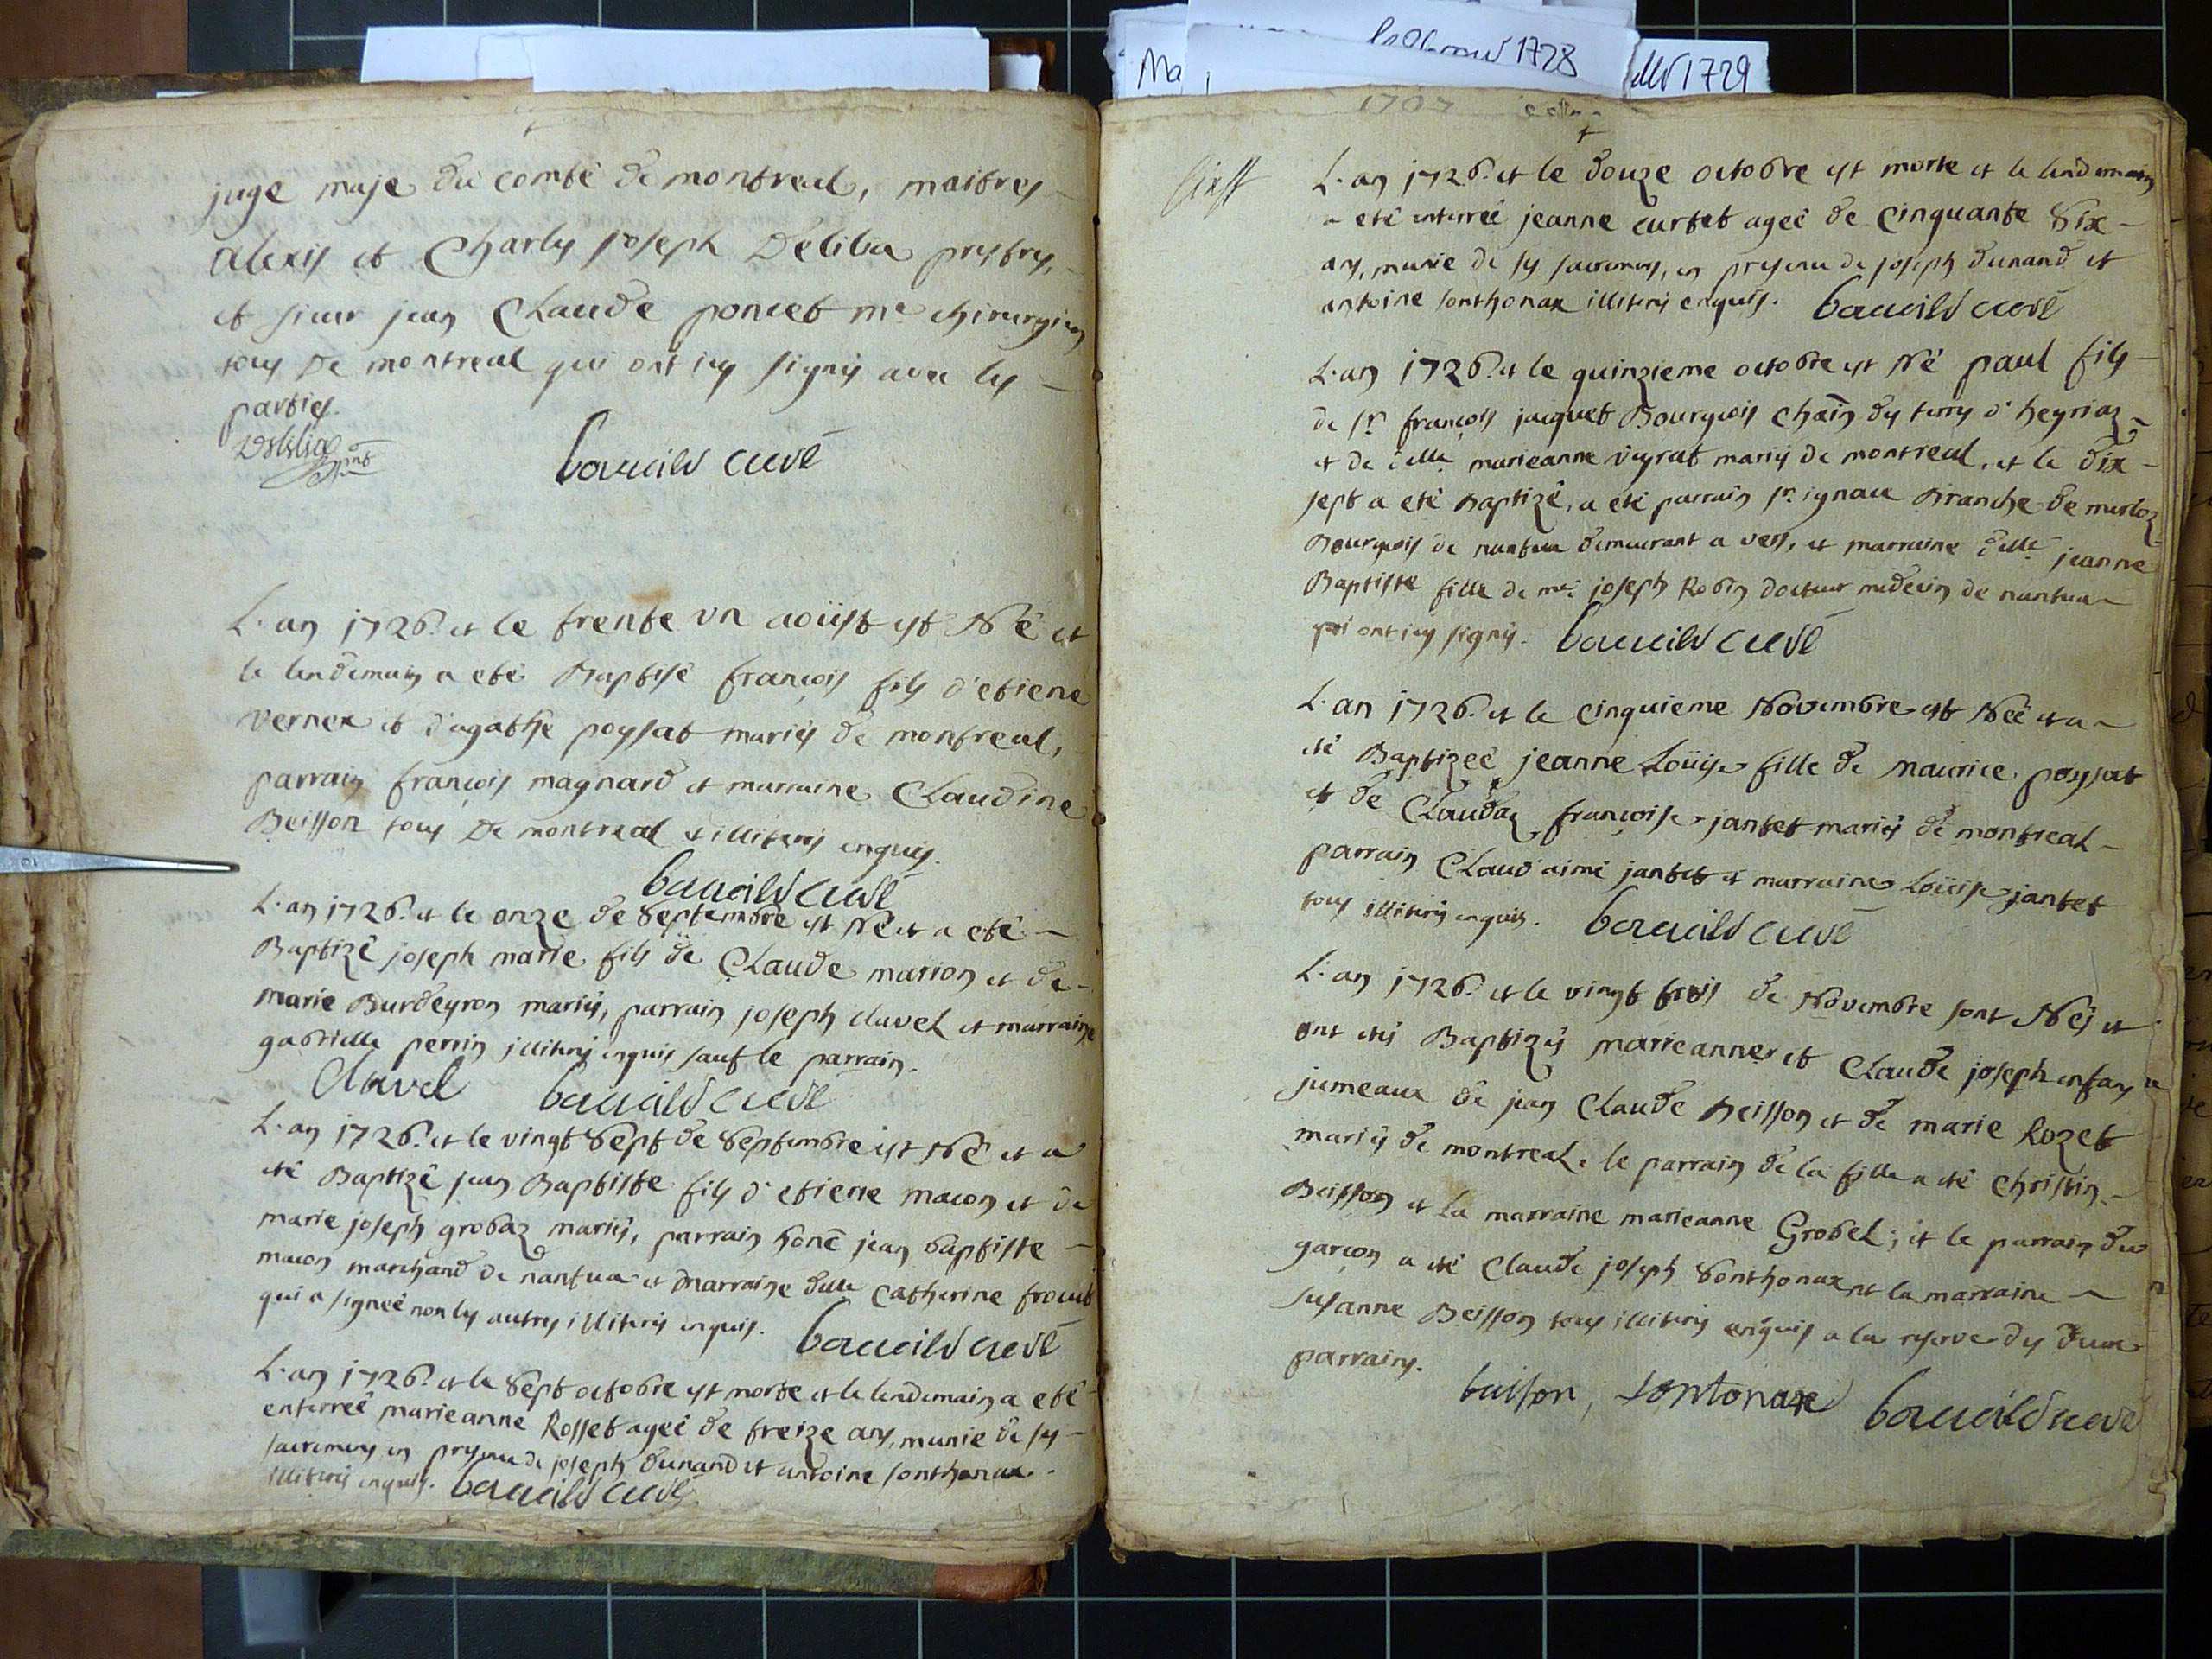 1728
Ma
1729
juge maje du comté de montreal, maitres
alexis et Charles joseph Delilia prestres,
et sieur jean Claude poncet me chirurgien
tous De montreal qui ont icy signés avec les
parties.
Delilia
curé
L'an 1726. et le trente un aoüst est Né et
le lendemain a eté Baptisé françois fils d'etiene
vernex et d'agathe poysat mariés de montreal,
parrain françois magnard et marraine Claudine
Beisson tous De montreal et illiterés enquis.
curé
L'an 1726. et le onze de Septembre est Né et a eté
Baptizé joseph marie fils de Claude marion et de
marie Burdeyron mariés, parrain joseph clavel et marraine
gabrielle perrin illiterés enquis sauf le parrain.
Clavel curé
L'an 1726. et le vingt Sept de Septembre est Né et a
eté Baptizé jean Baptiste fils d'etiene macon et de
marie joseph grobaz mariés, parrain honē jean baptiste
macon marchand de nantua et marraine dlle Catherine
qui a signeé non les autres illiterés enquis. curé
L'an 1726. et le Sept octobre est morte et le lendemain a eté
enterreé marieanne Rosset ageé de treize ans, munie de ses
sacremens en presence de joseph dunand et antoine sonthonax.
illiterés enquis. curé
1707
L'an 1726. et le douze octobre est morte et le lendemain
a eté enterreé jeanne curtet ageé de cinquante Six
ans, munie de ses sacremens, en presence de joseph dunand et
antoine sonthonax illiterés enquis. curé
L'an 1726. et le quinzieme octobre est Né paul fils
de sr. françois jacquet Bourgeois chāīn des terres d'heyriaz
et de dlle marieanne veyrat mariés de montreal, et le dix
sept a eté Baptizé, a eté parrain sr. ignace Branche de
Bourgeois de nantua demeurant a vers, et marraine dlle jeanne
Baptiste fille de me. joseph Robin docteur medecin de nantua
qui ont icy signés. curé
L'an 1726. et le cinquieme Novembre est Neé et a
eté Baptizeé jeanne Loüise fille de maurice poysat
et de Claudaz françoise jantet mariés de montreal
parrain Claud'aimé jantet et marraine Loüise jantet
tous illiterés enquis. curé
L'an 1726. et le vingt trois de Novembre sont Nés et
ont etés Baptizés marieanne et Claude joseph enfans
jumeaux de jean Claude beisson et de marie Rozet
mariés de montreal. le parrain de la fille a eté christin
Beisson et la marraine marieanne Grobel; et le parrain du
garçon a eté Claude joseph Sonthonax et la marraine
susanne Beisson tous illiterés enquis a la reserve des deux
parrains.
beisson, sontonax curé